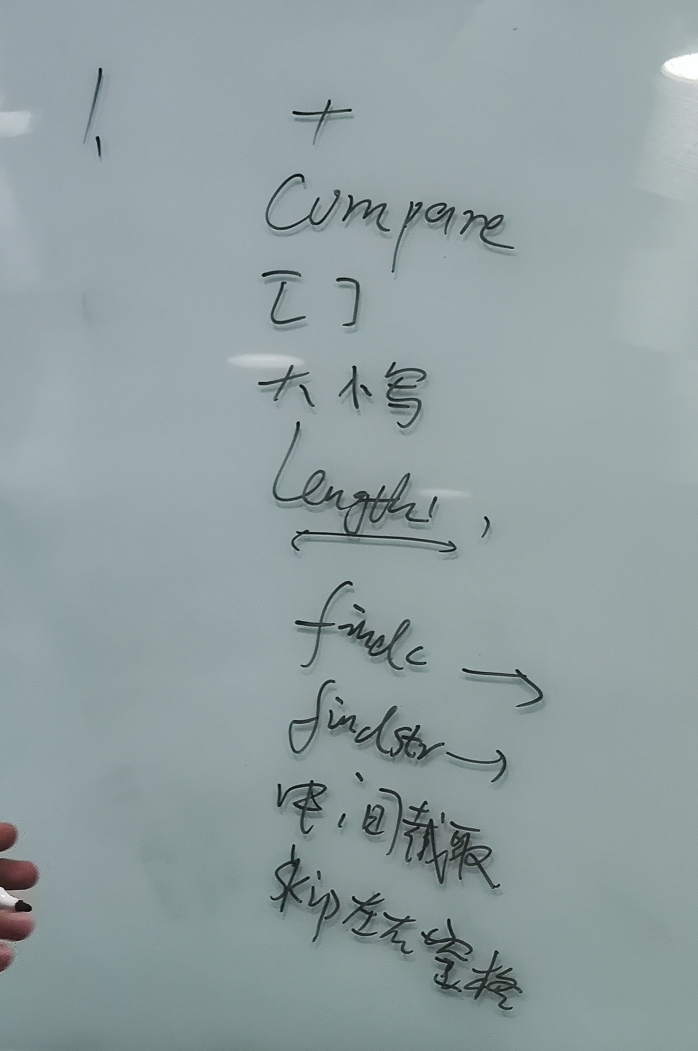 1、 +
Compare
[ ]
大小写
Length
findc →
findstr →
中间截取
skip左右空格